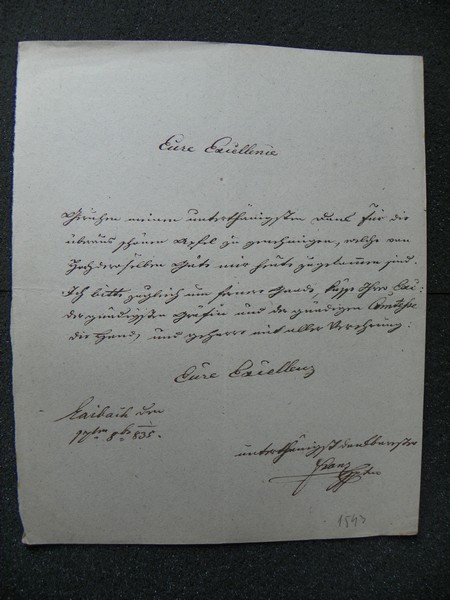 Eure Excellenz
Geruhen meinen unterthänigsten Dank für die
überaus schönen Äpfel zu genehmigen, welche von
Hochderselben Güte mir heute zugekommen sind.
Ich bitte zugleich um fernere Gnade, küsse Ihrer Exz:
der gnädigsten Gräfin und der gnädigen Comtesse
die Hand, und geharre mit aller Verehrung:
Eure Excellenz
Laibach den
17ten 8br 835.
unterthänigst dankbarster
Franz
1543